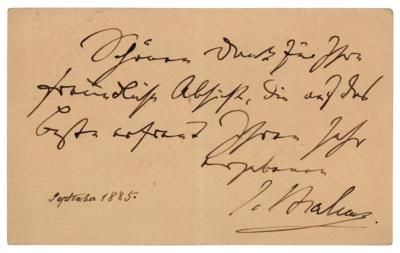 Schönen Dank für Ihre
freundliche Absicht, die auf das
beste erfreut Ihren sehr
ergebenen
September 1885.
J. Brahms.